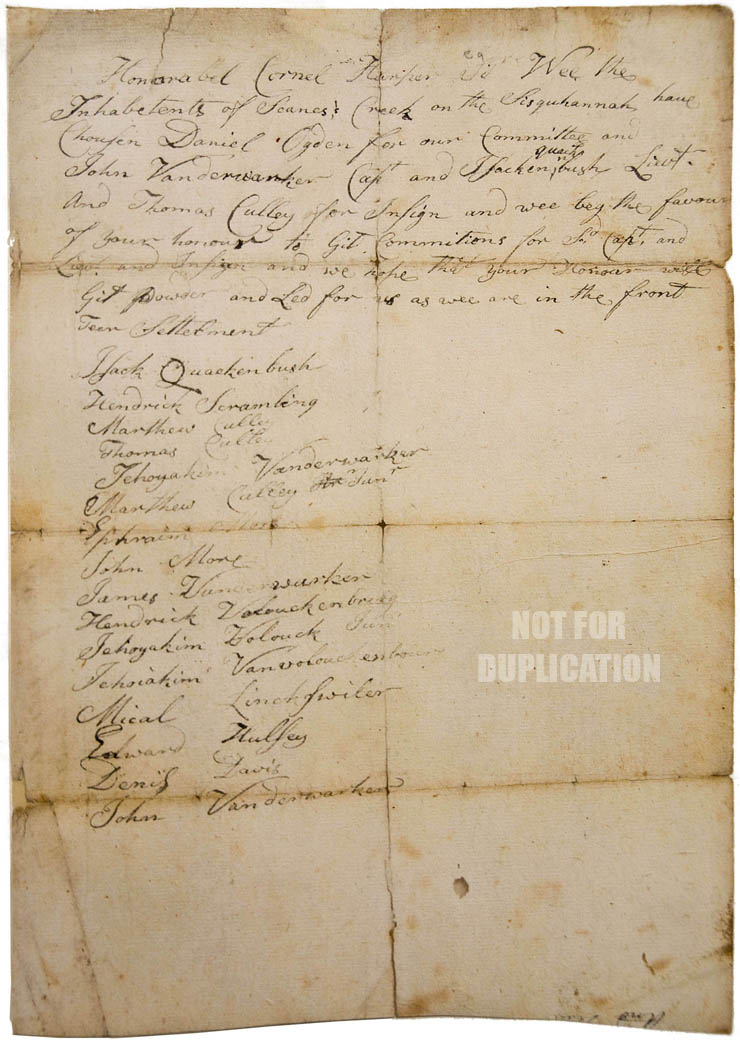 Honorabel Cornel Harper Sir Wee the
Inhabetents of Scanes,s Creek on the Sisquhannah have
Chousen Daniel Ogden for our Committee and
John Vanderwarker Capt and IJacken quaik bush Liwt.
And Thomas Culley for Insign and wee beg the favour
of your honour to Git Commitions for Sd Capt, and
Liew. and Insign and we hope that your Honour will
Git powder and Led for us as wee are in the front
Teer Settelment
IJack Quackenbush
Hendrick Scrambling
Marthew Culley
Thomas Culley
Jehoyakim Vanderwarker
Marthew Culley Junr
Ephraim More
John More
James Vanderwarker
Hendrick Volouckenbrieg
Jehoyakim Volouck Junr
Jehoiakim Vanvolouckenbourg
Mical Linchfwiler
Edward Hulsey
Denis Davis
John Vanderwarker
NOT FOR
DUPLICATION